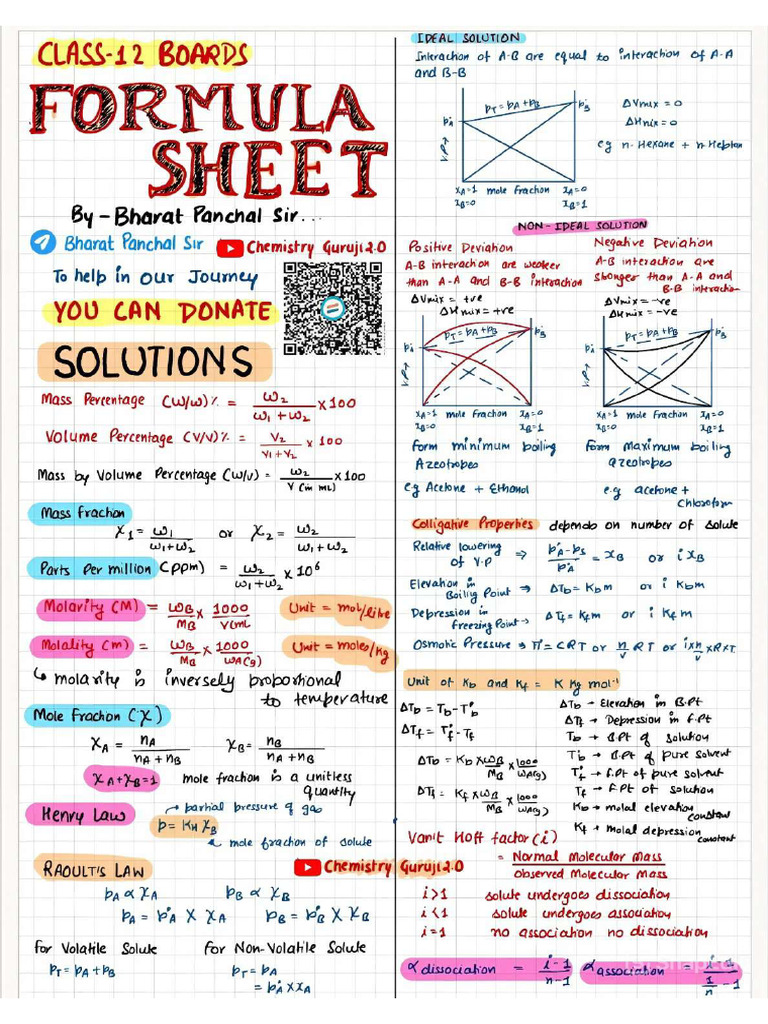 CLASS-12 BOARDS
FORMULA
SHEET
By - Bharat Panchal Sir...
Bharat Panchal Sir
Chemistry Guruji 2.0
To help in our Journey
YOU CAN DONATE
SOLUTIONS
Mass Percentage (w/w)% = w₂/(w₁+w₂) × 100
Volume Percentage (V/V)% = V₂/(V₁+V₂) × 100
Mass by Volume Percentage (w/v) = w₂/(V (in mL)) × 100
Mass fraction
χ₁ = w₁/(w₁+w₂) or χ₂ = w₂/(w₁+w₂)
Parts Per million (ppm) = w₂/(w₁+w₂) × 10⁶
Molarity (M) = w_B/M_B × 1000/V(mL) Unit = mol/litre
Molality (m) = w_B/M_B × 1000/w_A(g) Unit = moles/kg
↳ molarity is inversely proportional
to temperature
Mole Fraction (χ)
χ_A = n_A/(n_A+n_B) χ_B = n_B/(n_A+n_B)
χ_A+χ_B=1 mole fraction is a unitless
quantity
Henry Law
→ partial pressure of gas
p = K_H χ_B
→ mole fraction of solute
RAOULT'S LAW
Chemistry Guruji 2.0
p_A ∝ χ_A p_B ∝ χ_B
p_A = p°_A × χ_A p_B = p°_B × χ_B
for Volatile Solute for Non-Volatile Solute
p_T = p_A + p_B p_T = p_A
= p°_A × χ_A
IDEAL SOLUTION
Interaction of A-B are equal to interaction of A-A
and B-B
p_T = p_A + p_B
p°_A p°_B
V.P →
χ_A=1 mole fraction χ_A=0
χ_B=0 χ_B=1
ΔVmix = 0
ΔHmix = 0
eg n-Hexane + n-Heptan
NON-IDEAL SOLUTION
Positive Deviation
A-B interaction are weaker
than A-A and B-B interaction
ΔVmix = +ve
ΔHmix = +ve
p_T = p_A + p_B
p°_A p°_B
V.P →
χ_A=1 mole fraction χ_A=0
χ_B=0 χ_B=1
form minimum boiling
Azeotropes
eg Acetone + Ethanol
Negative Deviation
A-B interaction are
stronger than A-A and
B-B interaction
ΔVmix = -ve
ΔHmix = -ve
p_T = p_A + p_B
p°_A p°_B
χ_A=1 mole fraction χ_A=0
χ_B=0 χ_B=1
form maximum boiling
azeotropes
e.g acetone +
Chloroform
Colligative Properties depends on number of solute
Relative lowering
of V.P ⇒ (p°_A - p_s)/p°_A = χ_B or i χ_B
Elevation in
Boiling Point → ΔT_b = K_b m or i K_b m
Depression in
freezing Point → ΔT_f = K_f m or i K_f m
Osmotic Pressure → π = CRT or n/v RT or i × n/v × R × T
Unit of K_b and K_f = K Kg mol⁻¹
ΔT_b = T_b - T°_b
ΔT_f = T°_f - T_f
ΔT_b = K_b × w_B/M_B × 1000/w_A(g)
ΔT_f = K_f × w_B/M_B × 1000/w_A(g)
ΔT_b → Elevation in B.Pt
ΔT_f → Depression in F.Pt
T_b → B.Pt of solution
T°_b → B.Pt of pure solvent
T°_f → F.Pt of pure solvent
T_f → F.Pt of solution
K_b → molal elevation
constant
K_f → molal depression
constant
Vanit Hoff factor (i)
= Normal Molecular Mass / Observed Molecular Mass
i>1 solute undergoes dissociation
i<1 solute undergoes association
i=1 no association no dissociation
α dissociation = (i-1)/(n-1) α association = (i-1)/(1/n - 1)